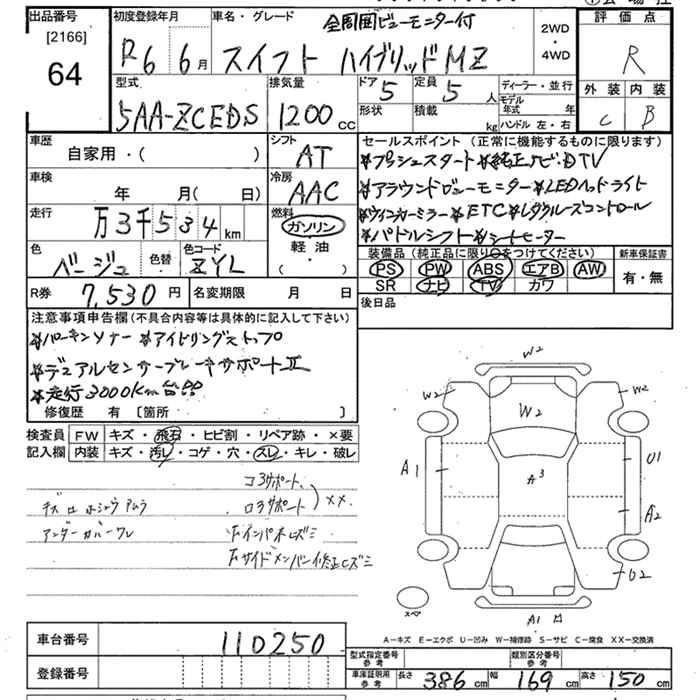 出品番号
[2166]
64
初度登録年月
R6年6月
車名・グレード
全周囲ビューモニター付
スイフト ハイブリッドMZ
2WD
・
4WD
評価点
R
外装 内装
C B
型式
5AA-ZCEDS
排気量
1200cc
ドア 5
形状
定員 5人
積載 kg
ディーラー・並行
モデル年式 年
ハンドル 左・右
車歴
自家用・( )
シフト
AT
車検
年 月( 日)
冷房
AAC
走行
万3千534km
燃料
ガソリン
軽油
・( )
色
ベージュ
色替
色コード
ZYL
セールスポイント (正常に機能するものに限ります)
*プッシュスタート*純正ナビ・DTV
*アラウンドビューモニター*LEDヘッドライト
*ウィンカーミラー*ETC*レダクルーズコントロール
*パドルシフト*シートヒーター
装備品 (純正品に限り○をつけてください)
PS PW ABS エアB AW
SR ナビ TV カワ
新車保証書
有・無
R券 7,530円
名変期限 月 日
後日品
注意事項申告欄(不具合内容等は具体的に記入して下さい)
*パーキンソナー*アイドリングストップ
*デュアルセンサーブレーキサポートII
*走行3000Km台!!
修復歴 有 [箇所 ]
検査員
記入欄
FW キズ・飛石・ヒビ割・リペア跡・×要
内装 キズ・汚レ・コゲ・穴・スレ・キレ・破レ
コアサポート
ロアサポート
××
アンダーカバーワレ
FインパネLズミ
Fサイドメンバー修正Cズミ
W2
W2
W2
W2
A1
A3
U1
A2
U2
スペア
A1
A−キズ E−エクボ U−凹み W−補修跡 S−サビ C−腐食 XX−交換済
車台番号
110250
登録番号
型式指定番号
参考
類別区分番号
参考
車庫証明用
参考
長さ 386cm 幅 169cm 高さ 150cm